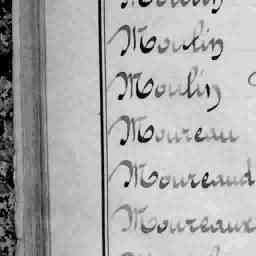 Moulin
Moulin
Moulin
Moureau
Moureaud
Moureaux